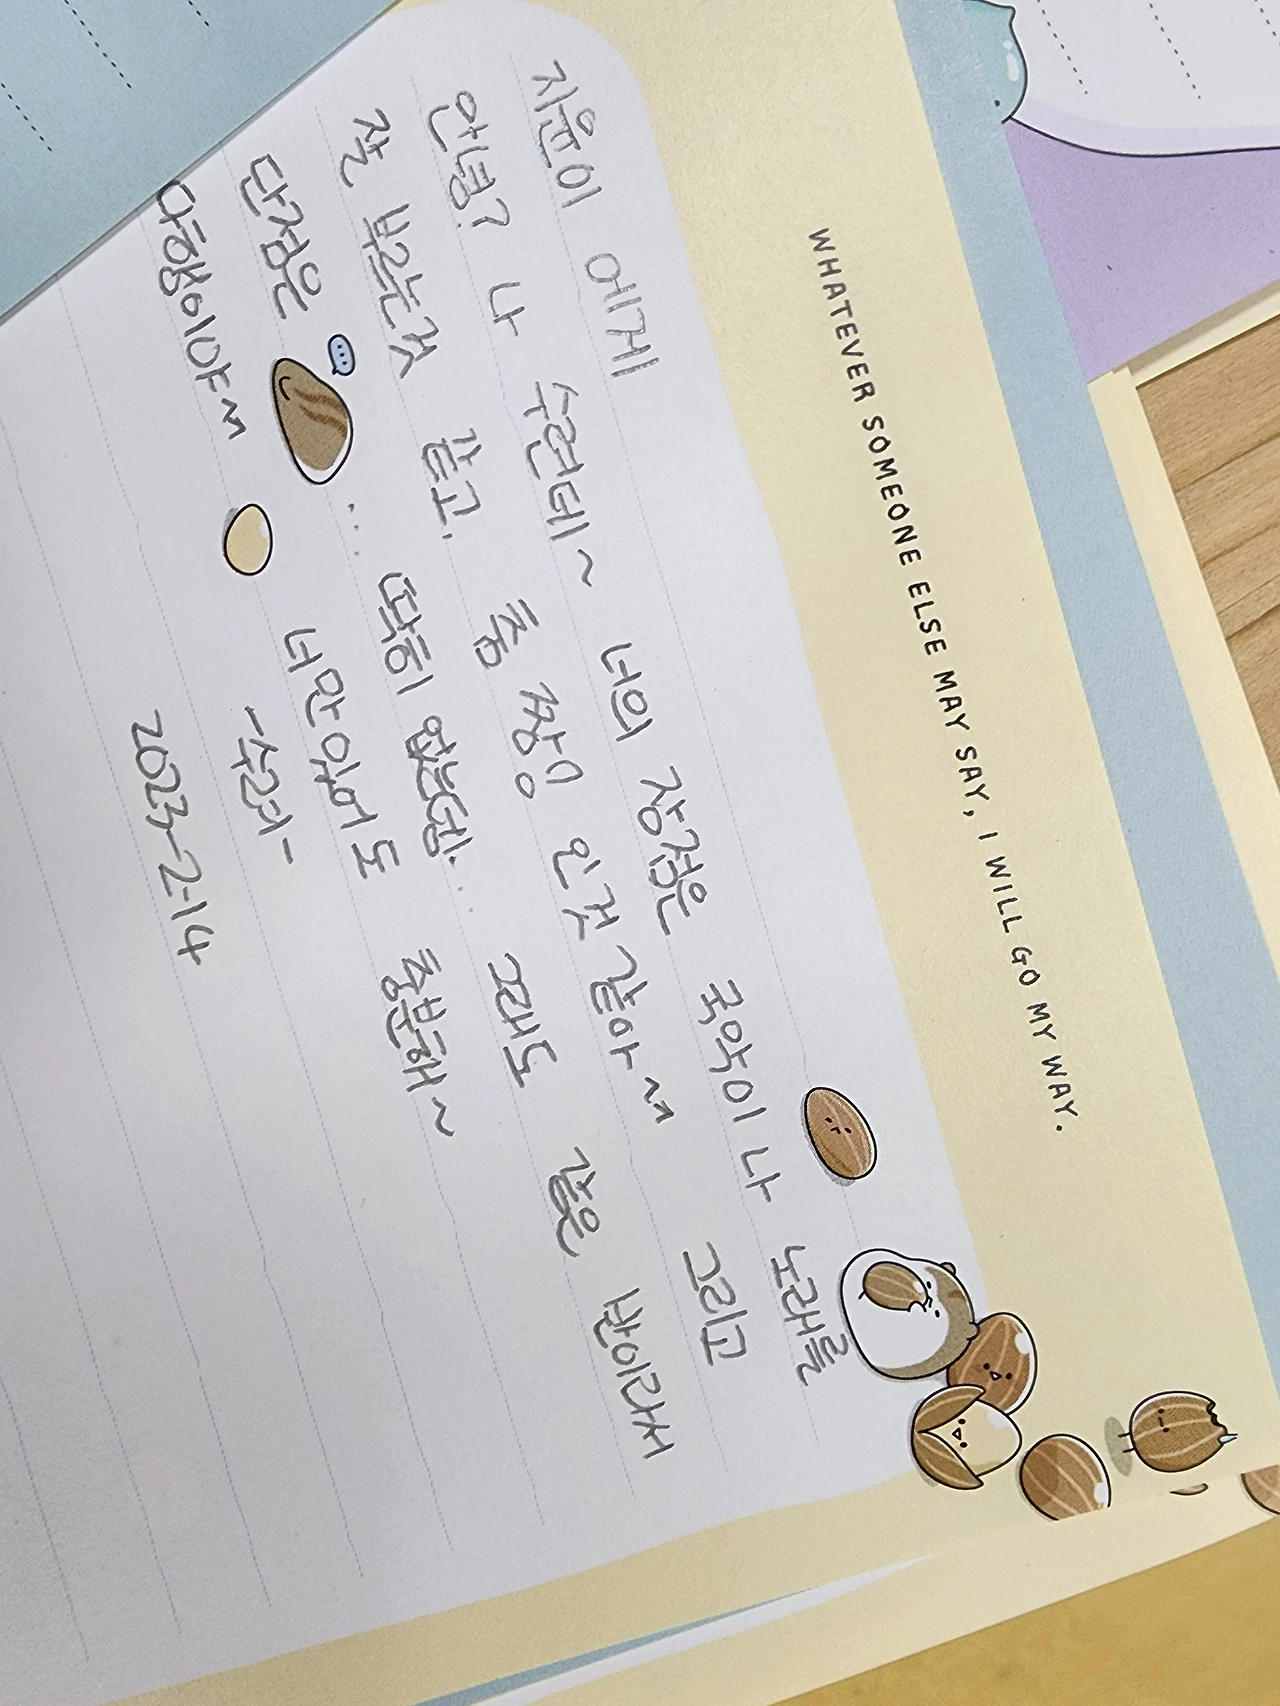 WHATEVER SOMEONE ELSE MAY SAY, I WILL GO MY WAY.
지윤이 에게
안녕? 나 수련데~ 너의 장점은 국악이나 노래를
잘 부르는것 같고, 춤 짱인것 같아~ 그리고
단점은 ... 딱히 없는뎅... 그래도 같은 반이라서
다행이야~ 너만 있어도 충분해~
-수려-
2023-2-14